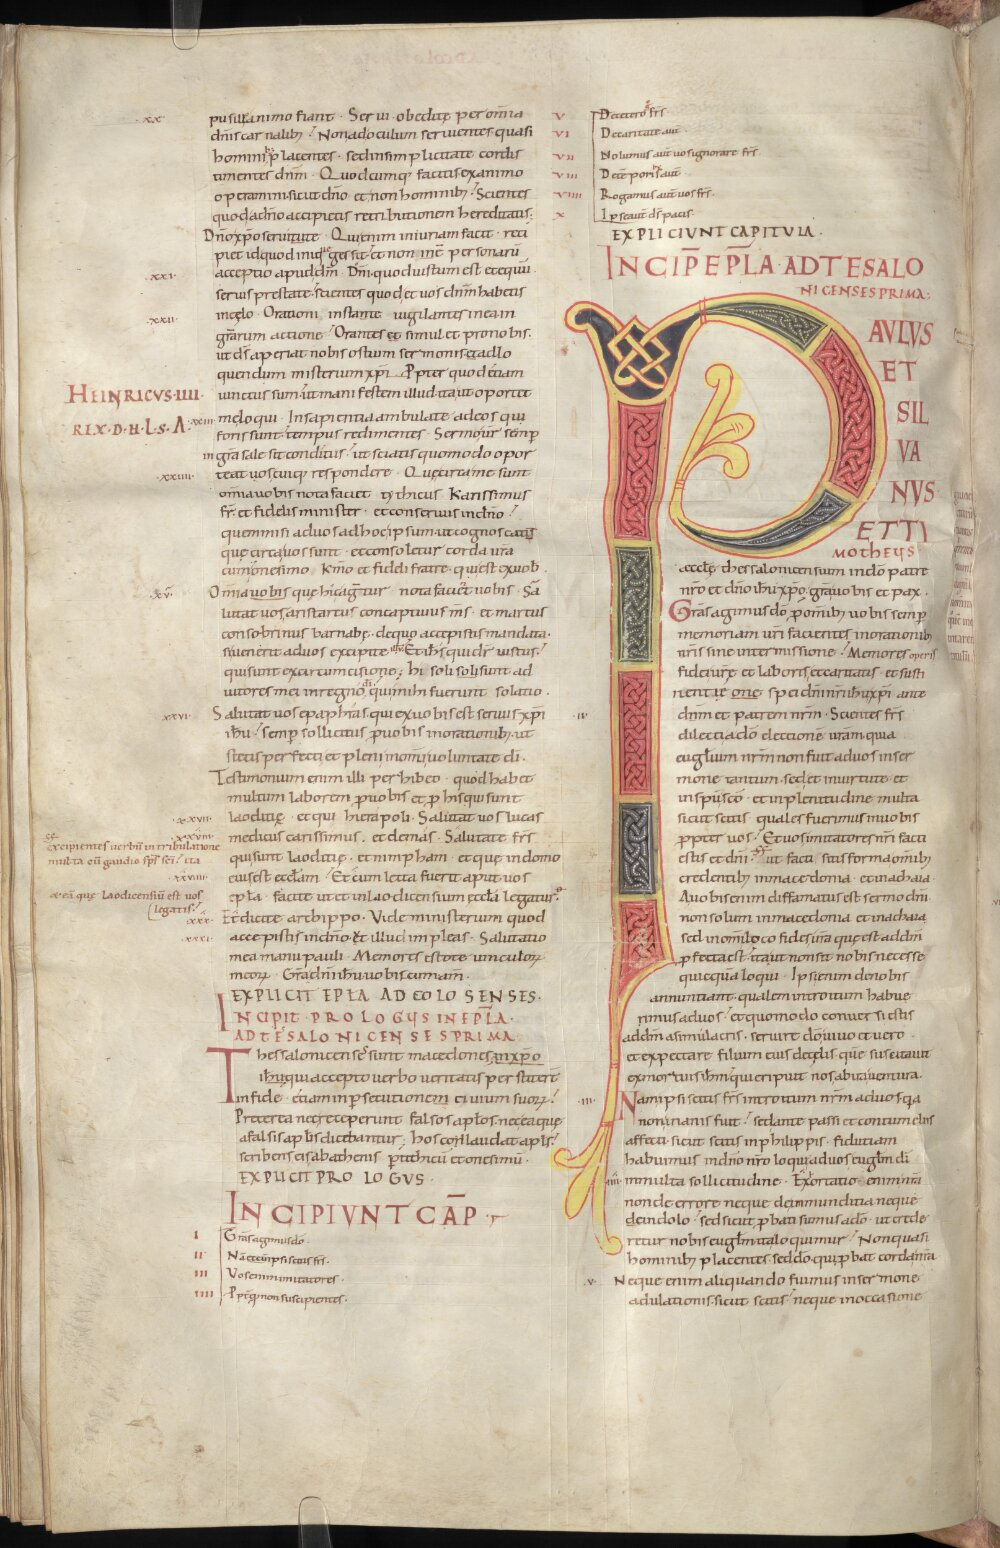 ·xx·
pusillanimo fiant · Servi obedite per omnia
dñis carnalib; Non ad oculum servientes quasi
hominib; placentes · sed in simplicitate cordis
timentes dnm̄ · Quodcumq; facitis ex animo
operamini sicut dño et non hominib; Scientes
quod a dño accipietis retributionem hereditatis;
Dño xp̄o servitute · Qui enim iniuriam facit · reci
piet id quod iniq;que gessit · et non inē personarū
·xxi·
acceptio apud dm̄ · Dñi · quod iustum est et equū
servis prestate · scientes quod et vos dnm̄ habetis
·xxii·
in celo · Orationi instante vigilantes in ea in
grārum actione · Orantes et simul et pro nobis ·
ut ds̄ aperiat nobis ostium sermonis · ad lo
quendum misterium xp̄i · Ppter quod etiam
HEINRICVS · IIII ·
vinctus sum ut manifestem illud ita ut oportet
REX · D · H · L · S · A ·
xxiii
me loqui · In sapientia ambulate ad eos qui
foris sunt · tempus redimentes · Sermo vr̄ semp̄
in gr̄a sale sit conditus · ut sciatis quomodo opor
·xxiiii·
teat vos cuiq; respondere · Que circa me sunt
omnia vobis nota faciet tythicus Karissimus
fr̄ · et fidelis minister · et conservus in dño ·
quem misi ad vos ad hoc ipsum ut cognoscatis
que circa vos sunt · et consoletur corda vr̄a
cum onesimo Kmō et fideli fratre · qui est ex vob̄ ·
·xxv·
Omnia vobis que hic aguntur nota facient vobis · Sa
lutat vos aristartus concaptivus ms̄ · et martus
consobrinus barnabe · de quo accepistis mandata ·
si venerit ad vos excipite Et ihs̄ qui dr̄ iustus
qui sunt ex circumcisione; hi soli sunt ad
iutores mei in regno di · qui mihi fuerunt solatio ·
·xxvi·
Salutat vos epaphras qui ex vobis est servus xp̄i
ihū · semp̄ sollicitus pro vobis in orationib; ut
stetis perfecti et pleni in omi voluntate dī ·
Testimonium enim illi perhibeo · quod habet
multum laborem pro vobis et p̄ his qui sunt
·xxvii·
laoditię · et qui hierapoli · Salutat vos lucas
·xxviii·
medicus carissimus · et demas · Salutate frs̄
excipientes verbū in tribulatione
multa cū gaudio sp̄s sc̄i · ita
qui sunt laoditię · et nimpham · et que in domo
·xxviiii·
eius est ecclām · Et cum lecta fuerit aput vos
et eā que Laodicensiū est vos
legatis ·
epl̄a · facite ut et in laodicensium ecclā legatur ·
·xxx·
Et dicite archippo · Vide ministerium quod
·xxxi·
accepistis in dño ut illud impleas · Salutatio
mea manu pauli · Memores estote vinculorz
meorz · Grā dnī ihū vobiscum am̄ ·
EXPLICIT EPLA AD COLOSENSES ·
INCIPIT · PROLOGUS IN EPLA ·
AD TESALONICENSES PRIMA
Thessalonicenses sunt macedones in xp̄o
ihū qui accepto verbo veritatis perstiterunt
in fide · etiam in persecutionem civium suorz
Preterea nec receperunt falsos aplōs · nec ea que
a falsis aplīs dicebantur; hos conlaudat apl̄s
scribens eis ab athenis p̄ tithicū et onesimū ·
EXPLICIT PROLOGVS ·
INCIPIVNT CAP̄ ·
I Grās agimus do ·
II Nā et cū ipsi scitis frs̄ ·
III Vos enim imitatores ·
IIII Ppt̄ q non suscipientes ·
V De cetero frs̄
VI De caritate aut̄ ·
VII Nolumus aut̄ vos ignorare frs̄
VIII De temporib; aut̄
VIIII Rogamus aut̄ vos frs̄ ·
X Ipse aut̄ ds̄ pacis
EXPLICIUNT CAPITULA ·
INCIP̄ EPL̄A · AD TESALO
NICENSES PRIMA ·
PAVLVS
ET
SIL
VA
NVS
ET TI
MOTHEVS
aecclę thessalonicensium in do patre
nr̄o et dño ihū xp̄o · gr̄a vobis et pax ·
Grās agimus do p̄ omib; vobis semp̄
memoriam vr̄i facientes in orationib;
nr̄is sine intermissione · Memores operis
fidei vr̄e et laboris et caritatis · et susti
nentie spei dnī nr̄i ihū xp̄i · ante
·ii·
dm̄ et patrem nr̄m · Scientes frs̄
dilecti a do electionē vr̄am quia
euglium nr̄m non fuit ad vos in ser
mone tantum · sed et in virtute · et
in spū sc̄o · et in plenitudine multa
sicut scitis quales fuerimus in vobis
p̄pter vos · Et vos imitatores nr̄i facti
estis et dnī · ut facti sitis forma omib;
credentib; in macedonia · et in achaia ·
A vobis enim diffamatus est sermo dnī
non solum in macedonia et in achaia
sed in omi loco fides vr̄a que est ad dm̄
p̄fecta est · ita ut non sit nobis necesse
quicquā loqui · Ipsi enim de nobis
annuntiant · qualem introitum habue
rimus ad vos · et quomodo conversi estis
ad dm̄ a simulacris · servire do vivo et vero
et expectare filium eius de celis quē suscitavit
ex mortuis ihm̄ qui eripuit nos ab ira ventura ·
·iii·
Nam ipsi scitis frs̄ introitum nr̄m ad vos · q̄a
non inanis fuit · sed ante passi et contumeliis
affecti · sicut scitis in philippis · fidutiam
habuimus in dño nr̄o loqui ad vos euglm̄ dī
·iiii·
in multa sollicitudine · Exortatio enim nr̄a
non de errore neque de inmunditia neque
de in dolo · sed sicut p̄bati sumus a do · ut crede
retur nobis euglm̄ ita loquimur · Non quasi
hominib; placentes · sed do · qui p̄bat corda nr̄a
·v·
Neque enim aliquando fuimus in sermone
adulationis · sicut scitis · neque in occasione